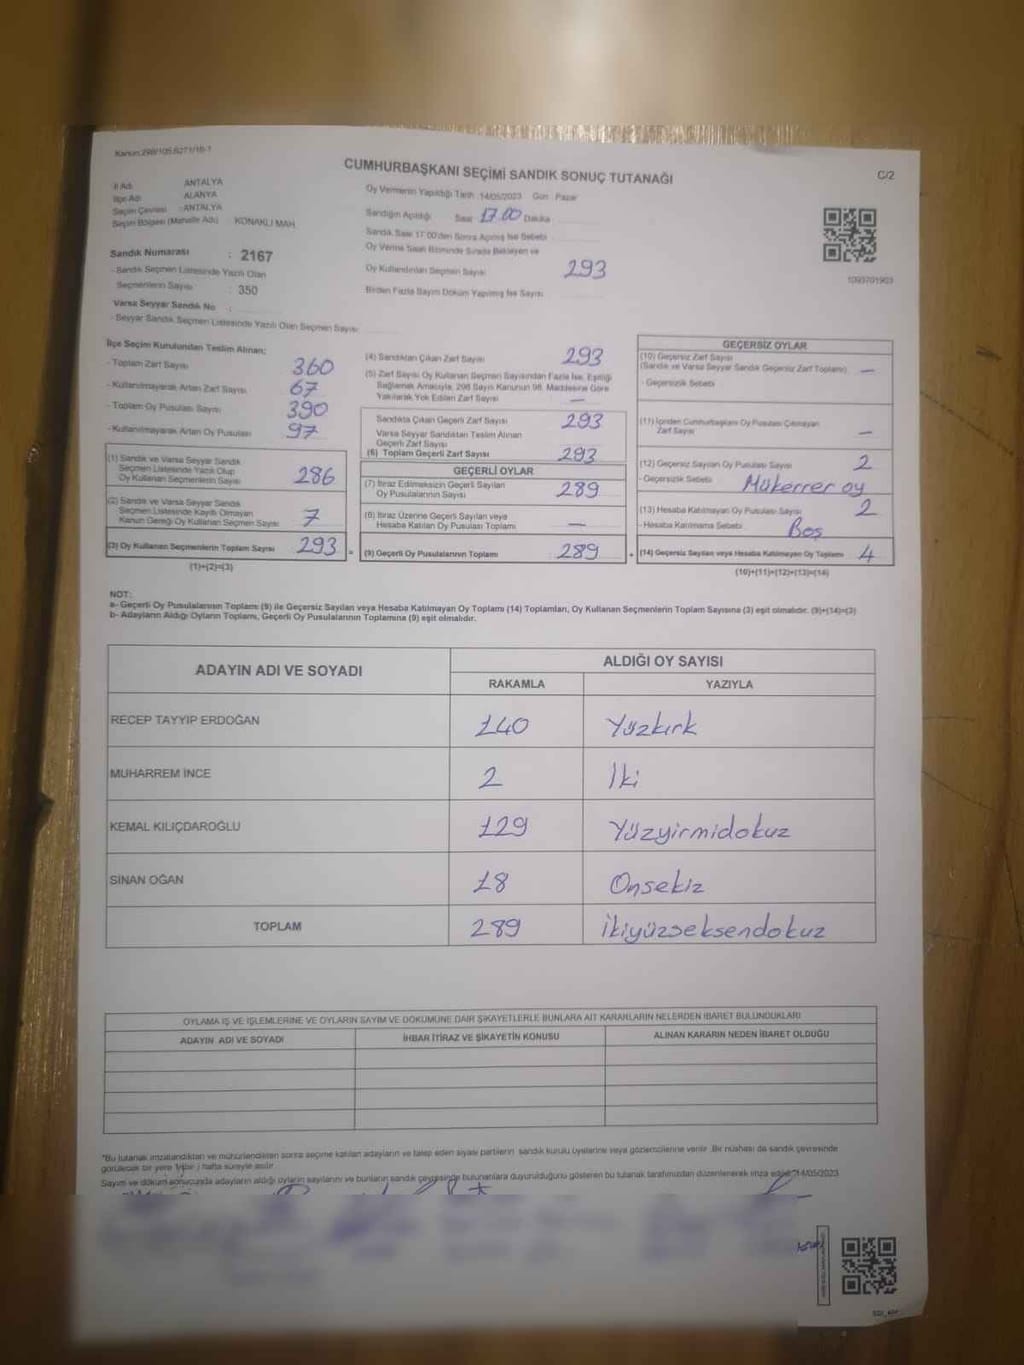 Kanun:298/105,6271/18-1
CUMHURBAŞKANI SEÇİMİ SANDIK SONUÇ TUTANAĞI
C/2
İl Adı ANTALYA
İlçe Adı ALANYA
Seçim Çevresi : ANTALYA
Seçim Bölgesi (Mahalle Adı) KONAKLI MAH.
Sandık Numarası : 2167
- Sandık Seçmen Listesinde Yazılı Olan
Seçmenlerin Sayısı : 350
Varsa Seyyar Sandık No :
- Seyyar Sandık Seçmen Listesinde Yazılı Olan Seçmen Sayısı
Oy Vermenin Yapıldığı Tarih :14/05/2023 Gün : Pazar
Sandığın Açıldığı Saat 17.00 Dakika
Sandık Saat 17:00'den Sonra Açılmış İse Sebebi
Oy Verme Saati Bitiminde Sırada Bekleyen ve
Oy Kullandırılan Seçmen Sayısı 293
Birden Fazla Sayım Döküm Yapılmış İse Sayısı
1093701903
İlçe Seçim Kurulundan Teslim Alınan;
- Toplam Zarf Sayısı 360
- Kullanılmayarak Artan Zarf Sayısı 67
- Toplam Oy Pusulası Sayısı 390
- Kullanılmayarak Artan Oy Pusulası 97
(1) Sandık ve Varsa Seyyar Sandık
Seçmen Listesinde Yazılı Olup
Oy Kullanan Seçmenlerin Sayısı 286
(2) Sandık ve Varsa Seyyar Sandık
Seçmen Listesinde Kayıtlı Olmayan
Kanun Gereği Oy Kullanan Seçmen Sayısı 7
(3) Oy Kullanan Seçmenlerin Toplam Sayısı 293 =
(1)+(2)=(3)
(4) Sandıktan Çıkan Zarf Sayısı 293
(5) Zarf Sayısı Oy Kullanan Seçmen Sayısından Fazla İse, Eşitliği
Sağlamak Amacıyla, 298 Sayılı Kanunun 98. Maddesine Göre
Yakılarak Yok Edilen Zarf Sayısı —
Sandıkta Çıkan Geçerli Zarf Sayısı 293
Varsa Seyyar Sandıktan Teslim Alınan
Geçerli Zarf Sayısı
(6) Toplam Geçerli Zarf Sayısı 293
GEÇERLİ OYLAR
(7) İtiraz Edilmeksizin Geçerli Sayılan
Oy Pusulalarının Sayısı 289
(8) İtiraz Üzerine Geçerli Sayılan veya
Hesaba Katılan Oy Pusulası Toplamı —
(9) Geçerli Oy Pusulalarının Toplamı 289 +
GEÇERSİZ OYLAR
(10) Geçersiz Zarf Sayısı
(Sandık ve Varsa Seyyar Sandık Geçersiz Zarf Toplamı) —
- Geçersizlik Sebebi
(11) İçinden Cumhurbaşkanı Oy Pusulası Çıkmayan
Zarf Sayısı —
(12) Geçersiz Sayılan Oy Pusulası Sayısı 2
- Geçersizlik Sebebi Mükerrer oy
(13) Hesaba Katılmayan Oy Pusulası Sayısı 2
- Hesaba Katılmama Sebebi Boş
(14) Geçersiz Sayılan veya Hesaba Katılmayan Oy Toplamı 4
(10)+(11)+(12)+(13)=(14)
NOT:
a- Geçerli Oy Pusulalarının Toplamı (9) ile Geçersiz Sayılan veya Hesaba Katılmayan Oy Toplamı (14) Toplamları, Oy Kullanan Seçmenlerin Toplam Sayısına (3) eşit olmalıdır. (9)+(14)=(3)
b- Adayların Aldığı Oyların Toplamı, Geçerli Oy Pusulalarının Toplamına (9) eşit olmalıdır.
ADAYIN ADI VE SOYADI ALDIĞI OY SAYISI
RAKAMLA YAZIYLA
RECEP TAYYİP ERDOĞAN 140 Yüzkırk
MUHARREM İNCE 2 İki
KEMAL KILIÇDAROĞLU 129 Yüzyirmidokuz
SİNAN OĞAN 18 Onsekiz
TOPLAM 289 ikiyüzseksendokuz
OYLAMA İŞ VE İŞLEMLERİNE VE OYLARIN SAYIM VE DÖKÜMÜNE DAİR ŞİKAYETLERLE BUNLARA AİT KARARLARIN NELERDEN İBARET BULUNDUKLARI
ADAYIN ADI VE SOYADI İHBAR İTİRAZ VE ŞİKAYETİN KONUSU ALINAN KARARIN NEDEN İBARET OLDUĞU
*Bu tutanak imzalandıktan ve mühürlendikten sonra seçime katılan adayların ve talep eden siyasi partilerin sandık kurulu üyelerine veya gözlemcilerine verilir. Bir nüshası da sandık çevresinde
görülecek bir yere 1(bir ) hafta süreyle asılır.
Sayım ve döküm sonucunda adayların aldığı oyların sayılarını ve bunların sandık çevresinde bulunanlara duyurulduğunu gösteren bu tutanak tarafımızdan düzenlenerek imza edildi. 14/05/2023